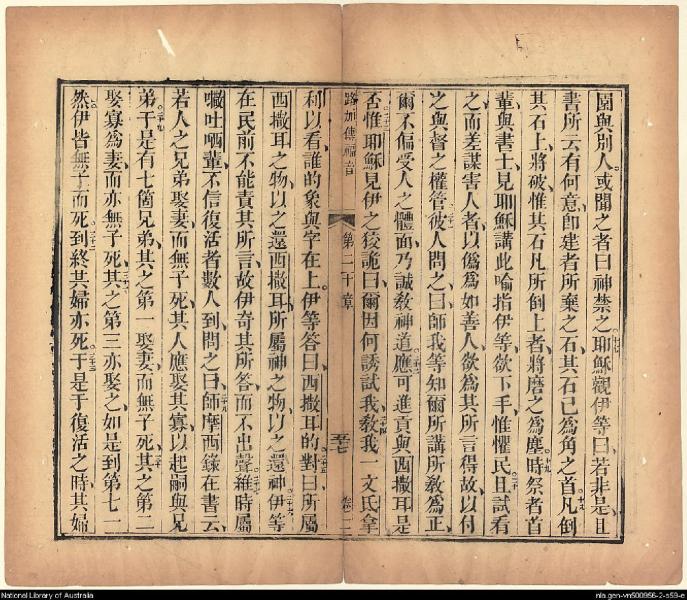 園與別人或聞之者曰神禁之耶穌觀伊等曰若非是且
書所云有何意卽建者所棄之石其石已爲角之首凡倒
其石上將破惟其石凡所倒上者將磨之爲塵時祭者首
輩與書士見耶穌講此喻指伊等欲下手惟懼民且試看
之而差謀害人者以僞爲如善人欲爲其所言得故以付
之與督之權管彼人問之曰師我等知爾所講所教爲正
爾不偏受人之體面乃誠教神道應可進貢與西撒耳是
否惟耶穌見伊之狡詭曰爾因何誘試我教我一文氏拿
路加傳福音
第二十章
五十七
卷三
利以看誰的象與字在上伊等答曰西撒耳的對曰所屬
西撒耳之物以之還西撒耳所屬神之物以之還神伊等
在民前不能責其所言故伊奇其所答而不出聲維時屬
嘁吐哂輩不信復活者數人到問之曰師摩西錄在書云
若人之兄弟娶妻而無子死其人應娶其寡以起嗣與兄
弟于是有七箇兄弟其之第一娶妻而無子死其之第二
娶寡爲妻而亦無子死其之第三亦娶之如是到第七一
然伊皆無子而死到終其婦亦死于是于復活之時其婦
National Library of Australia
nla.gen-vn500956-2-s59-e